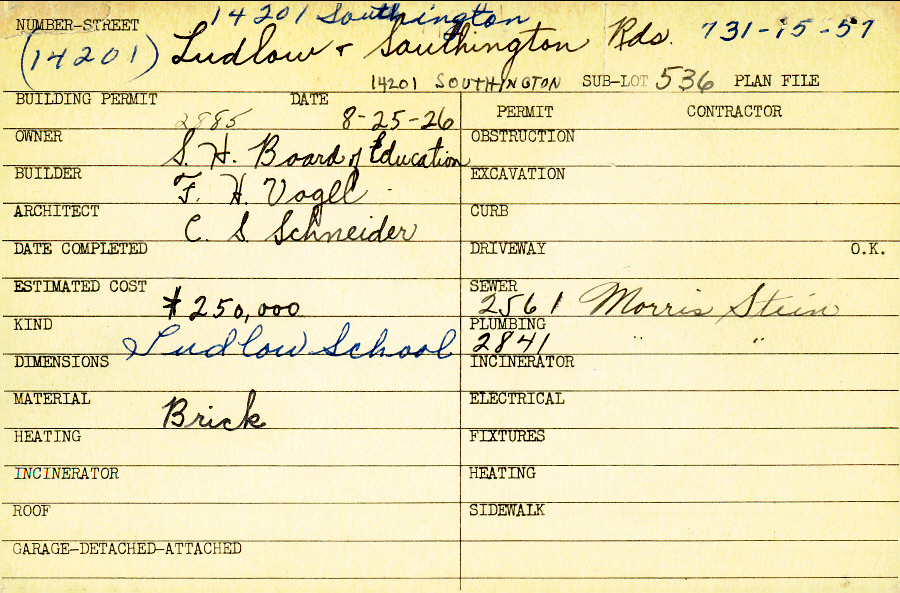 NUMBER-STREET 14201 Southington
(14201) Ludlow & Southington Rds. 731-15-57
14201 SOUTHINGTON SUB-LOT 536 PLAN FILE
BUILDING PERMIT 2885 DATE 8-25-26
PERMIT CONTRACTOR
OWNER S. H. Board of Education
OBSTRUCTION
BUILDER F. H. Vogel
EXCAVATION
ARCHITECT C. S. Schneider
CURB
DATE COMPLETED
DRIVEWAY O.K.
ESTIMATED COST $250,000
SEWER 2561 Morris Stein
KIND Ludlow School
PLUMBING 2841 " "
DIMENSIONS
INCINERATOR
MATERIAL Brick
ELECTRICAL
HEATING
FIXTURES
INCINERATOR
HEATING
ROOF
SIDEWALK
GARAGE-DETACHED-ATTACHED